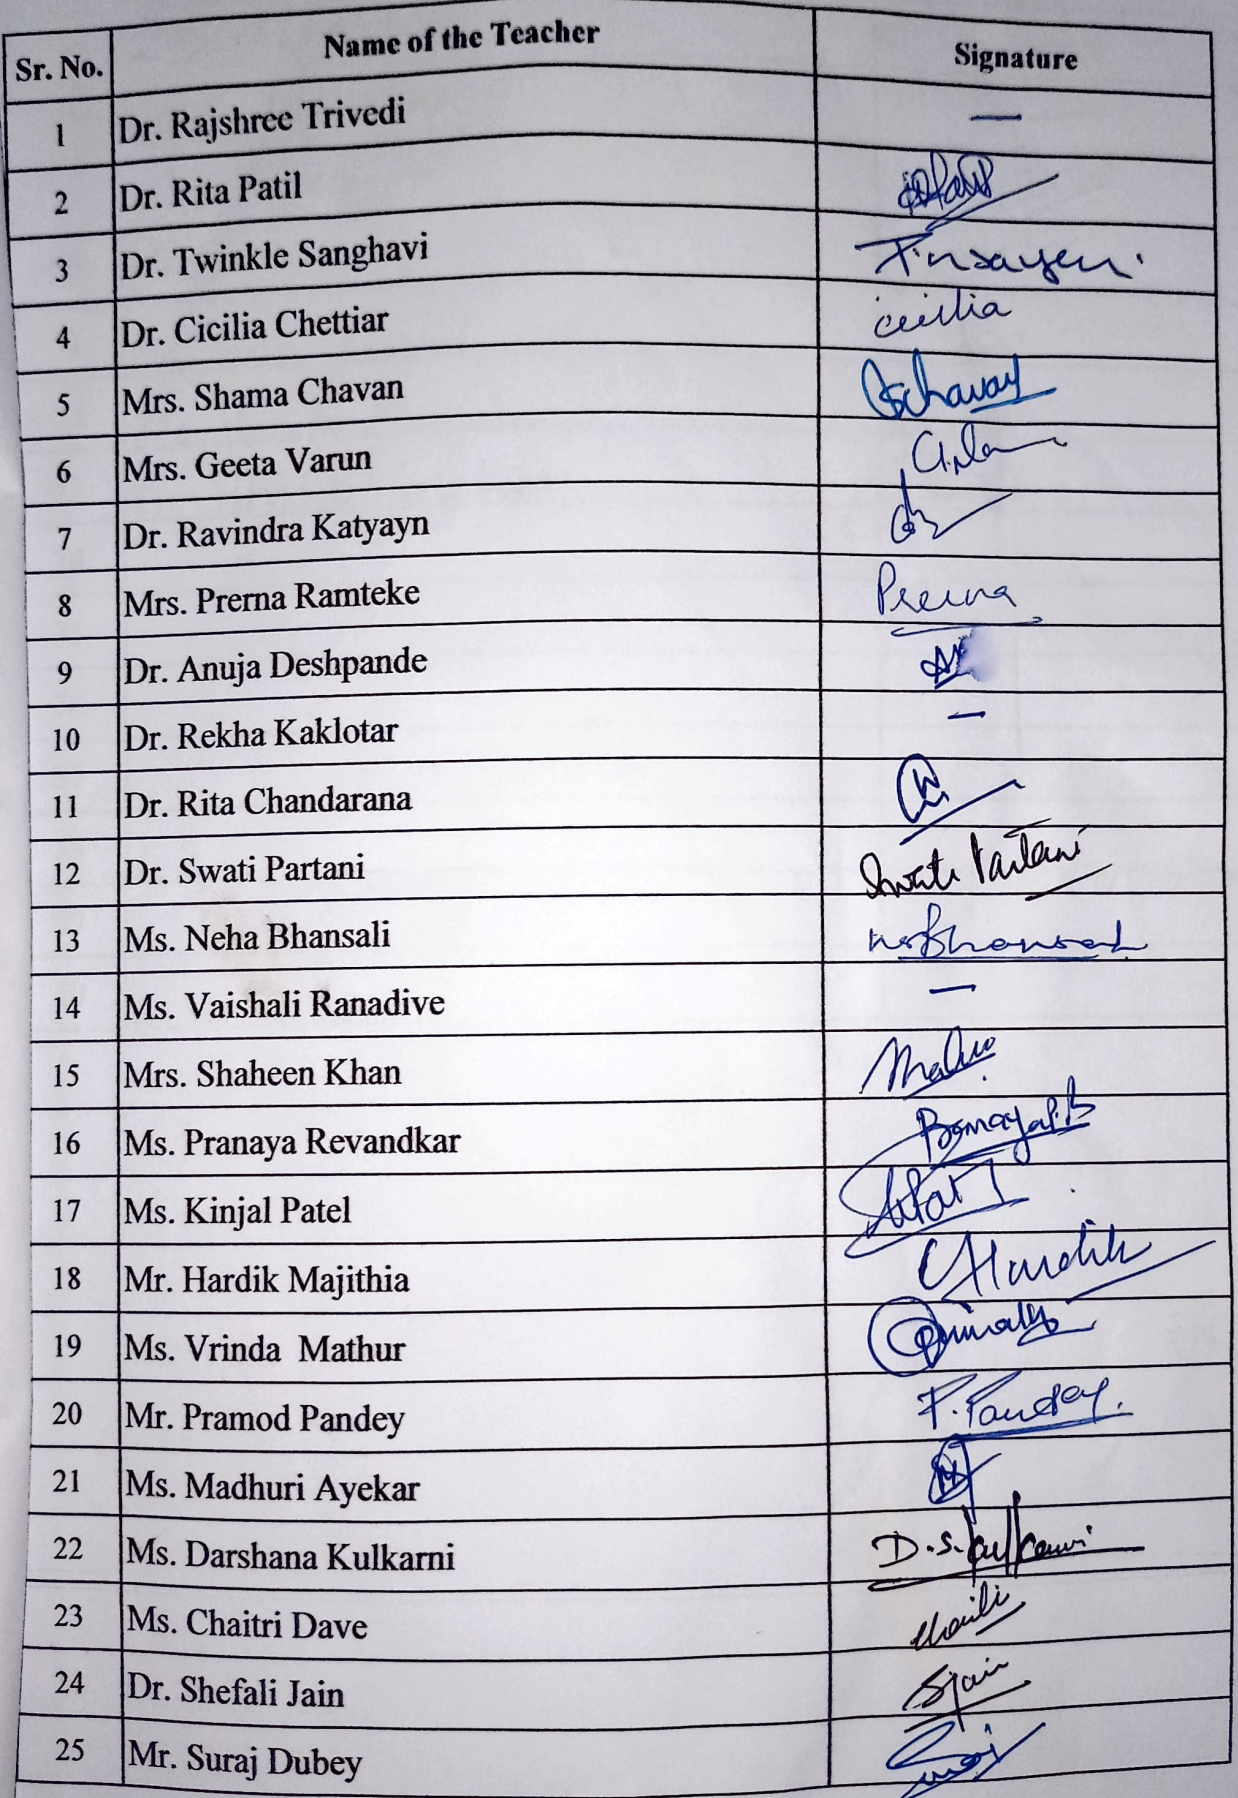 Sr. No. Name of the Teacher Signature
1 Dr. Rajshree Trivedi —
2 Dr. Rita Patil
3 Dr. Twinkle Sanghavi
4 Dr. Cicilia Chettiar cicilia
5 Mrs. Shama Chavan Schavan
6 Mrs. Geeta Varun
7 Dr. Ravindra Katyayn
8 Mrs. Prerna Ramteke Prerna
9 Dr. Anuja Deshpande
10 Dr. Rekha Kaklotar —
11 Dr. Rita Chandarana
12 Dr. Swati Partani Swati Partani
13 Ms. Neha Bhansali
14 Ms. Vaishali Ranadive —
15 Mrs. Shaheen Khan
16 Ms. Pranaya Revandkar
17 Ms. Kinjal Patel
18 Mr. Hardik Majithia Hardik
19 Ms. Vrinda Mathur
20 Mr. Pramod Pandey P. Pandey.
21 Ms. Madhuri Ayekar
22 Ms. Darshana Kulkarni D.S. Kulkarni
23 Ms. Chaitri Dave
24 Dr. Shefali Jain SJain
25 Mr. Suraj Dubey Suraj